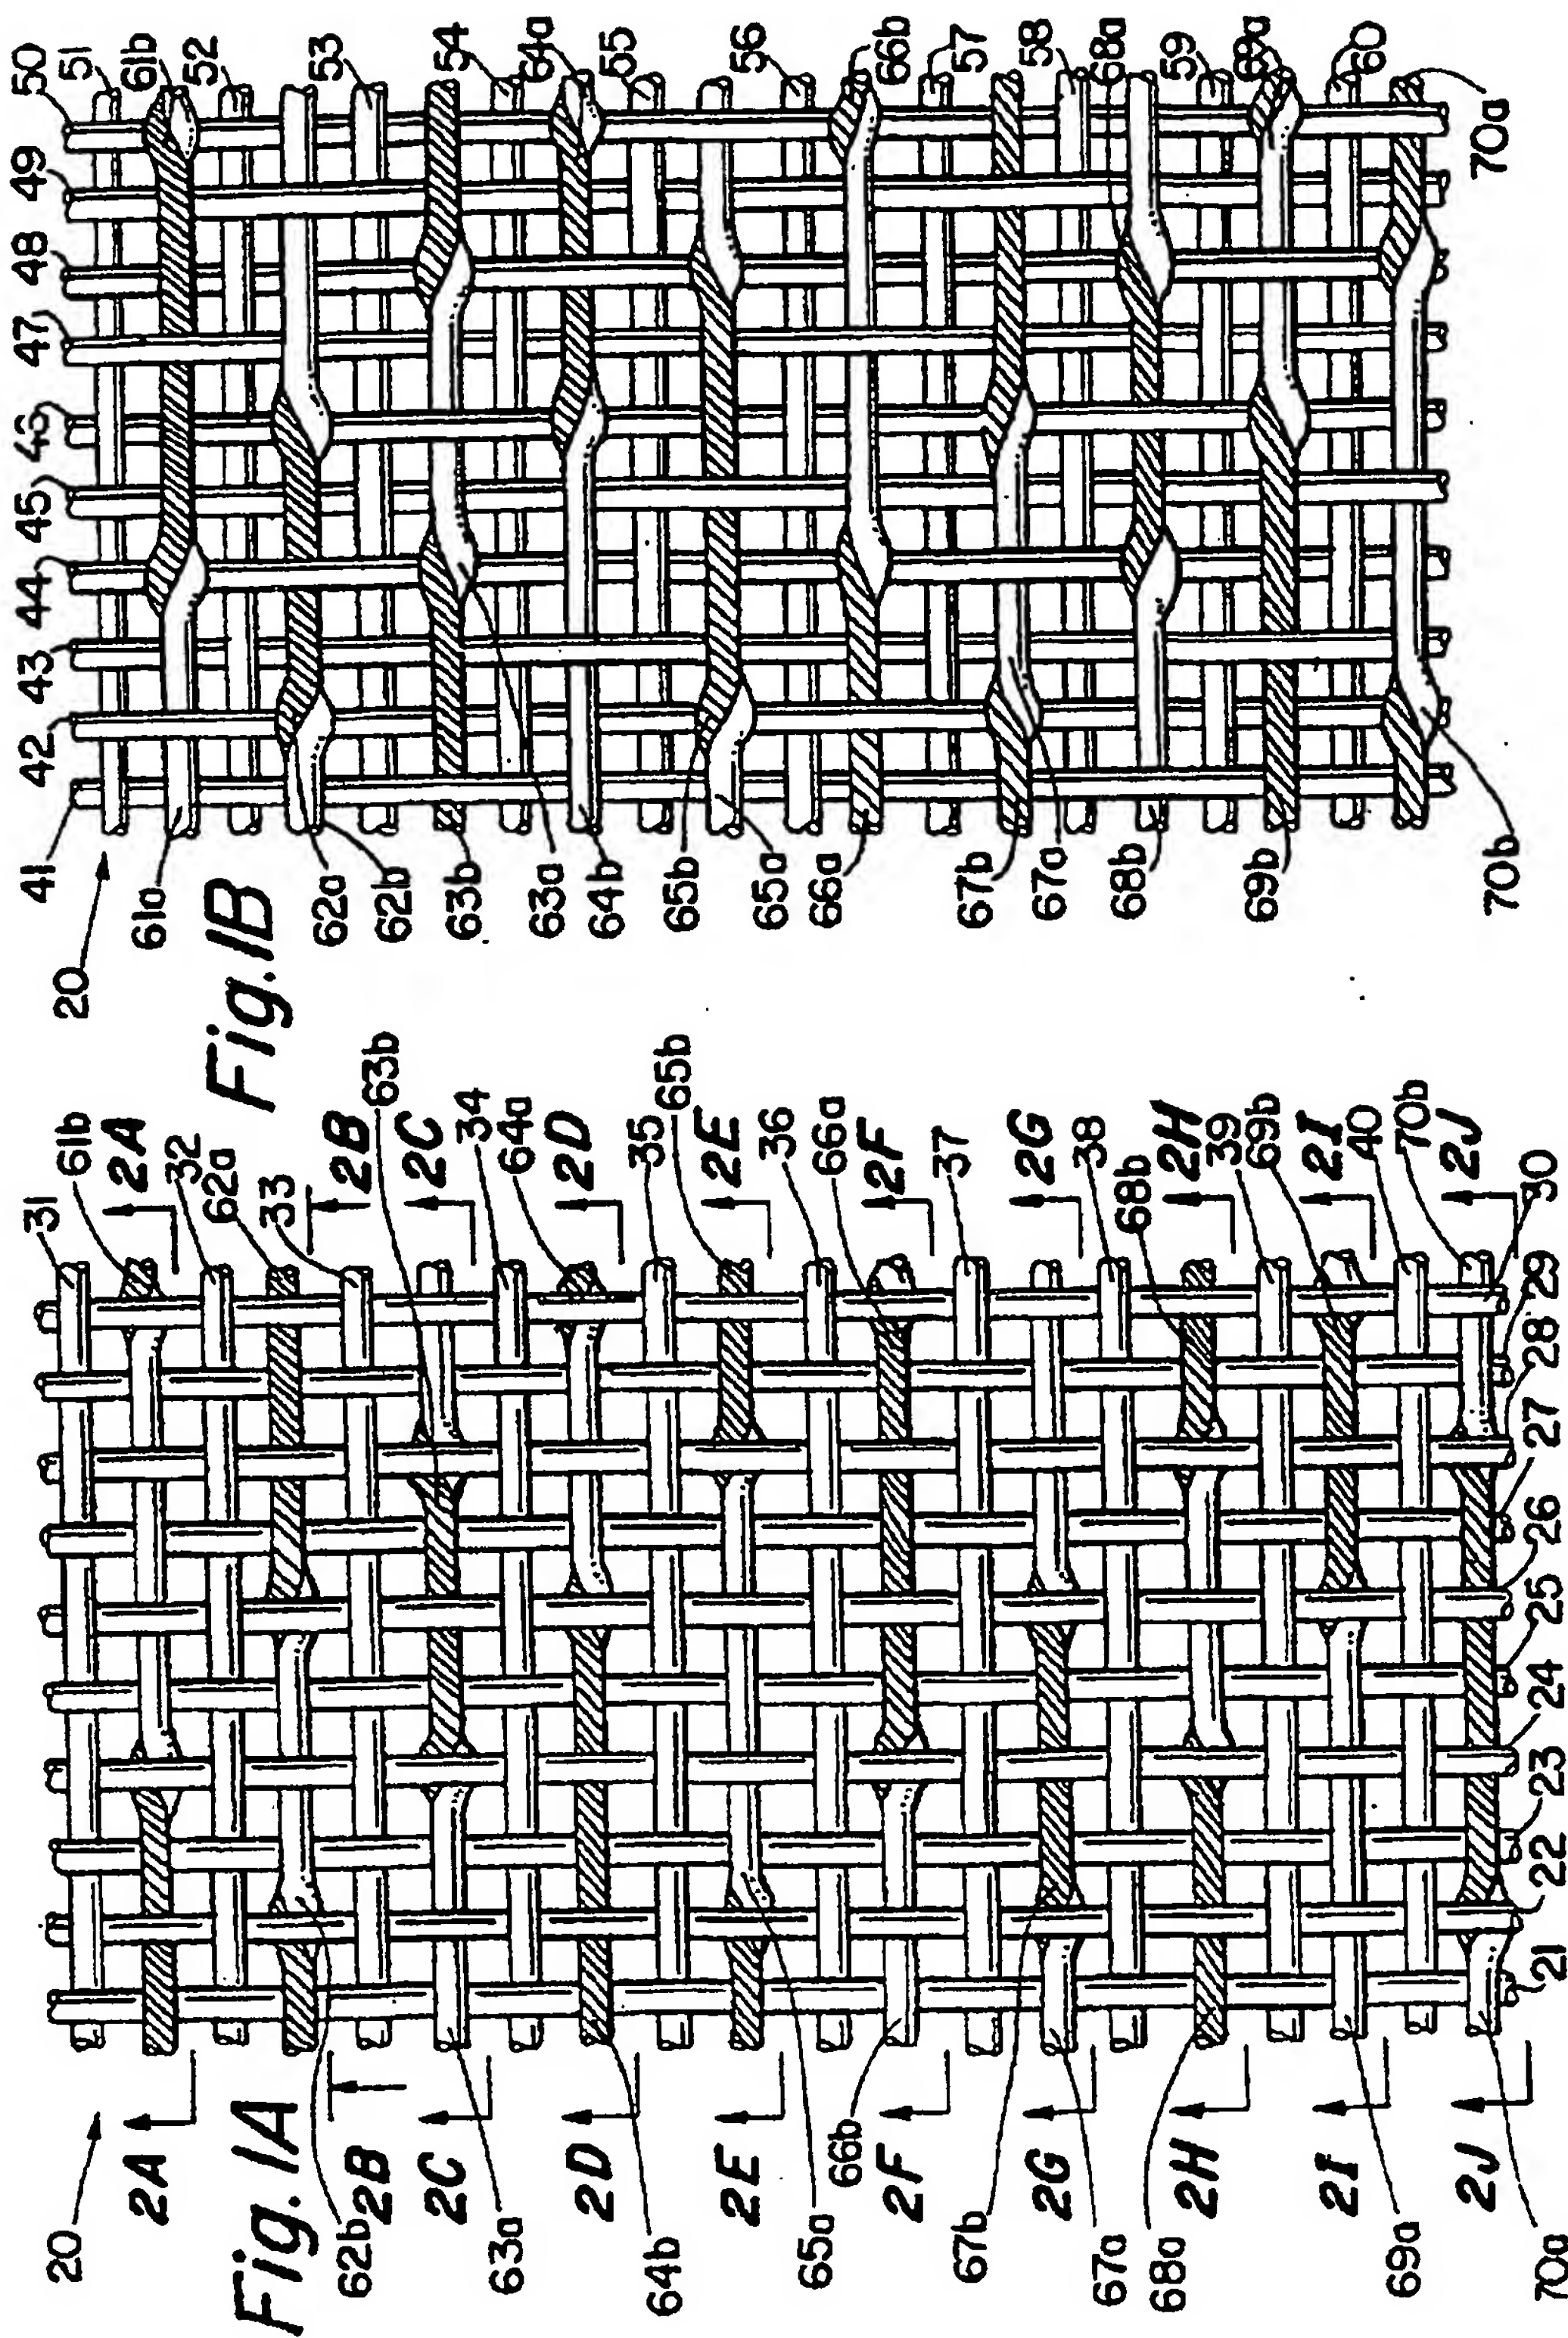 50
49
48
47
46
45
44
43
42
41
51
61b
52
53
54
64a
55
56
66b
57
58
68a
59
69a
60
70a
20
61a
62a
62b
63b
63a
64b
65b
65a
66a
67b
67a
68b
69b
70b
Fig.1B
31
61b
2A
32
62a
33
2B
63b
2C
34
64a
2D
35
65b
2E
36
66a
2F
37
2G
38
68b
2H
39
69b
2I
40
70b
2J
30
29
28
27
26
25
24
23
22
21
20
2A
62b
2B
2C
63a
2D
64b
2E
65a
66b
2F
67b
2G
67a
68a
2H
2I
69a
2J
70a
Fig.1A